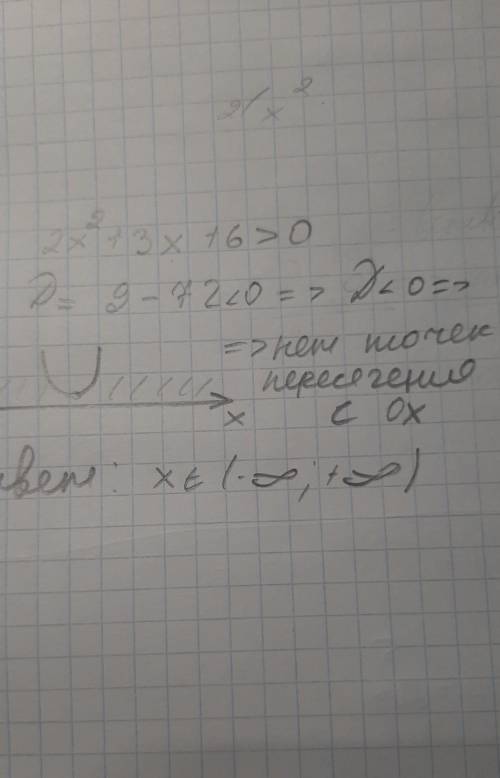 2x² + 3x + 6 > 0
D = 9 - 72 < 0 => D < 0 =>
=> нет точек
пересечения
x с OX
твет: x ∈ (-∞; +∞)